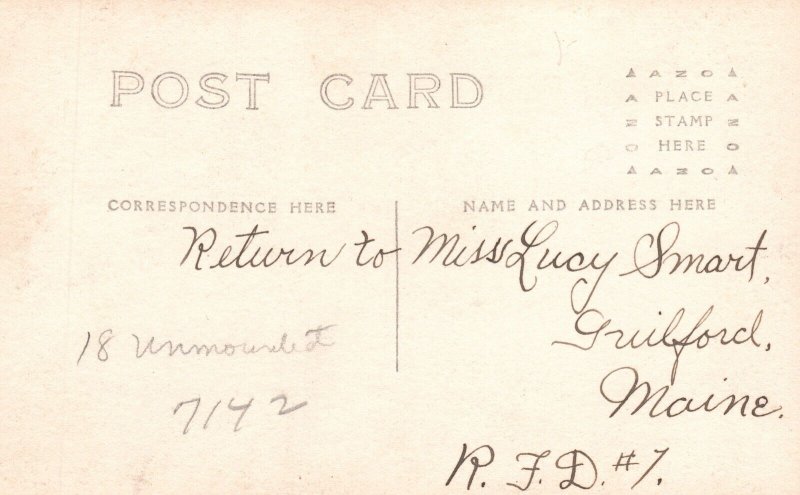 POST CARD
AZO
PLACE
STAMP
HERE
AZO
CORRESPONDENCE HERE
NAME AND ADDRESS HERE
Return to Miss Lucy Smart,
Guilford,
Maine.
R. F. D. #1.
18 Unmounted
7142